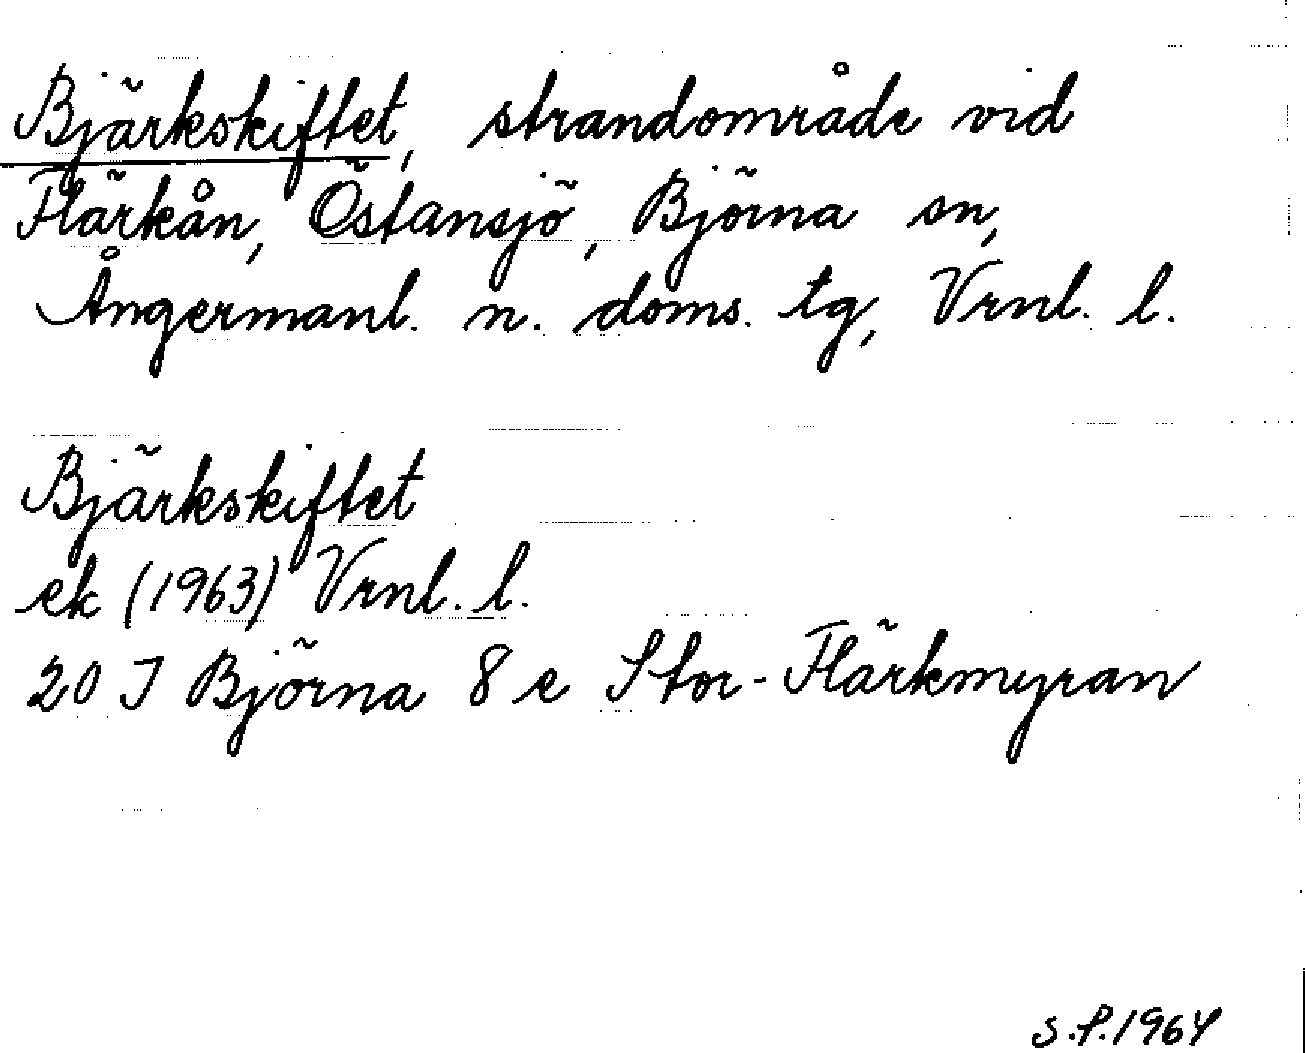 Bjärkskiftet, strandområde vid
Flärkån, Östansjö, Björna sn,
Ångermanl. n. doms. tg, Vrnl. l.
Bjärkskiftet
ek (1963) Vrnl. l.
20 I Björna 8 e Stor-Flärkmyran
S.P.1964